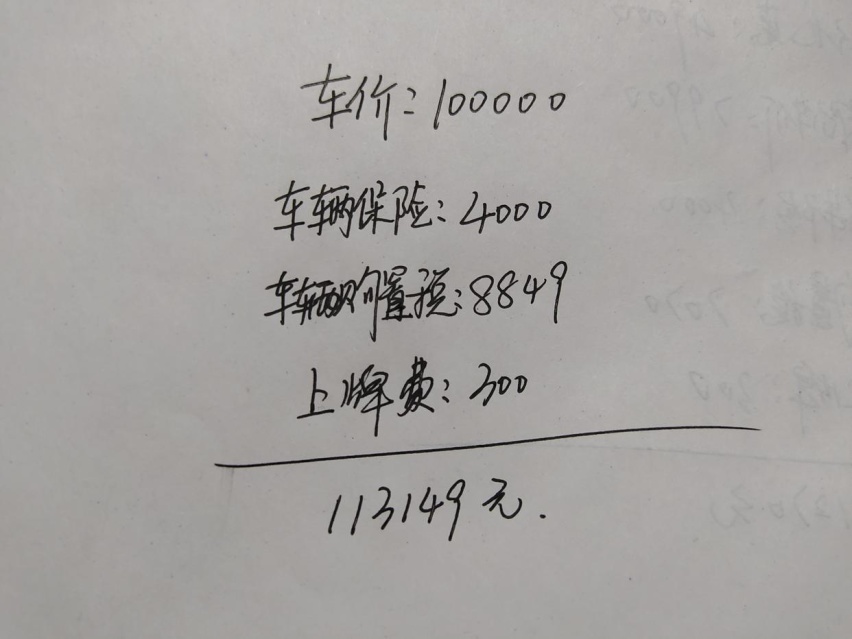 车价：100000
车辆保险：4000
车辆购置税：8849
上牌费：300
113149元.